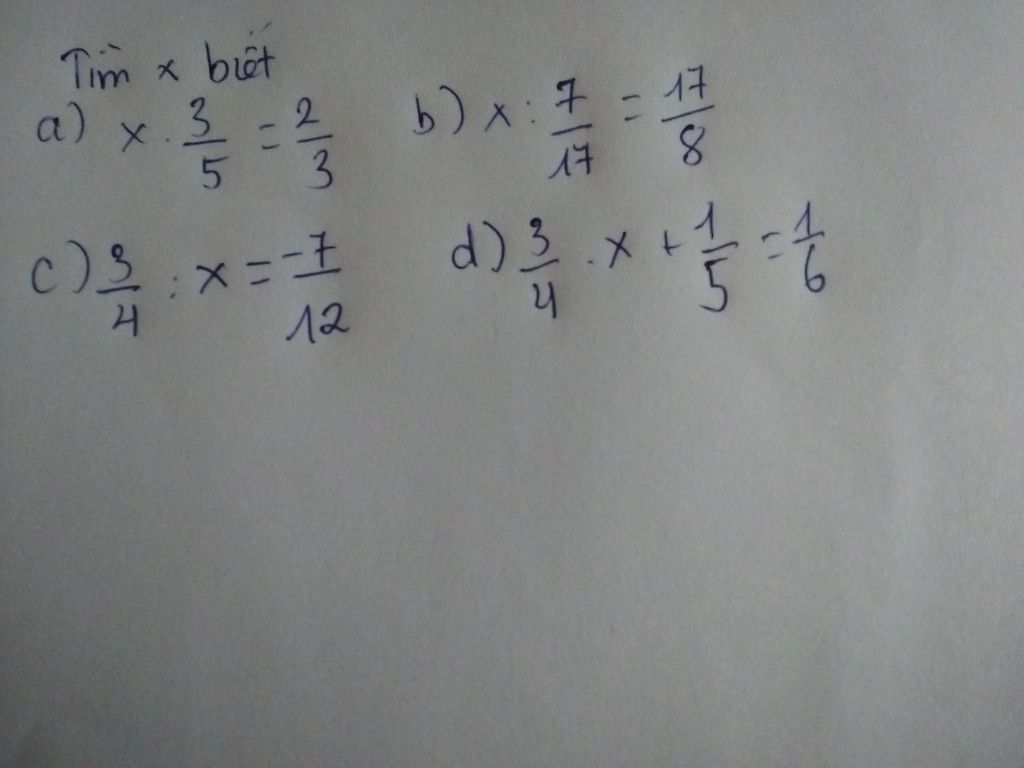 Tìm x biết
a) x . 3/5 = 2/3 b) x : 7/17 = 17/8
c) 3/4 : x = -7/12 d) 3/4 . x + 1/5 = 1/6